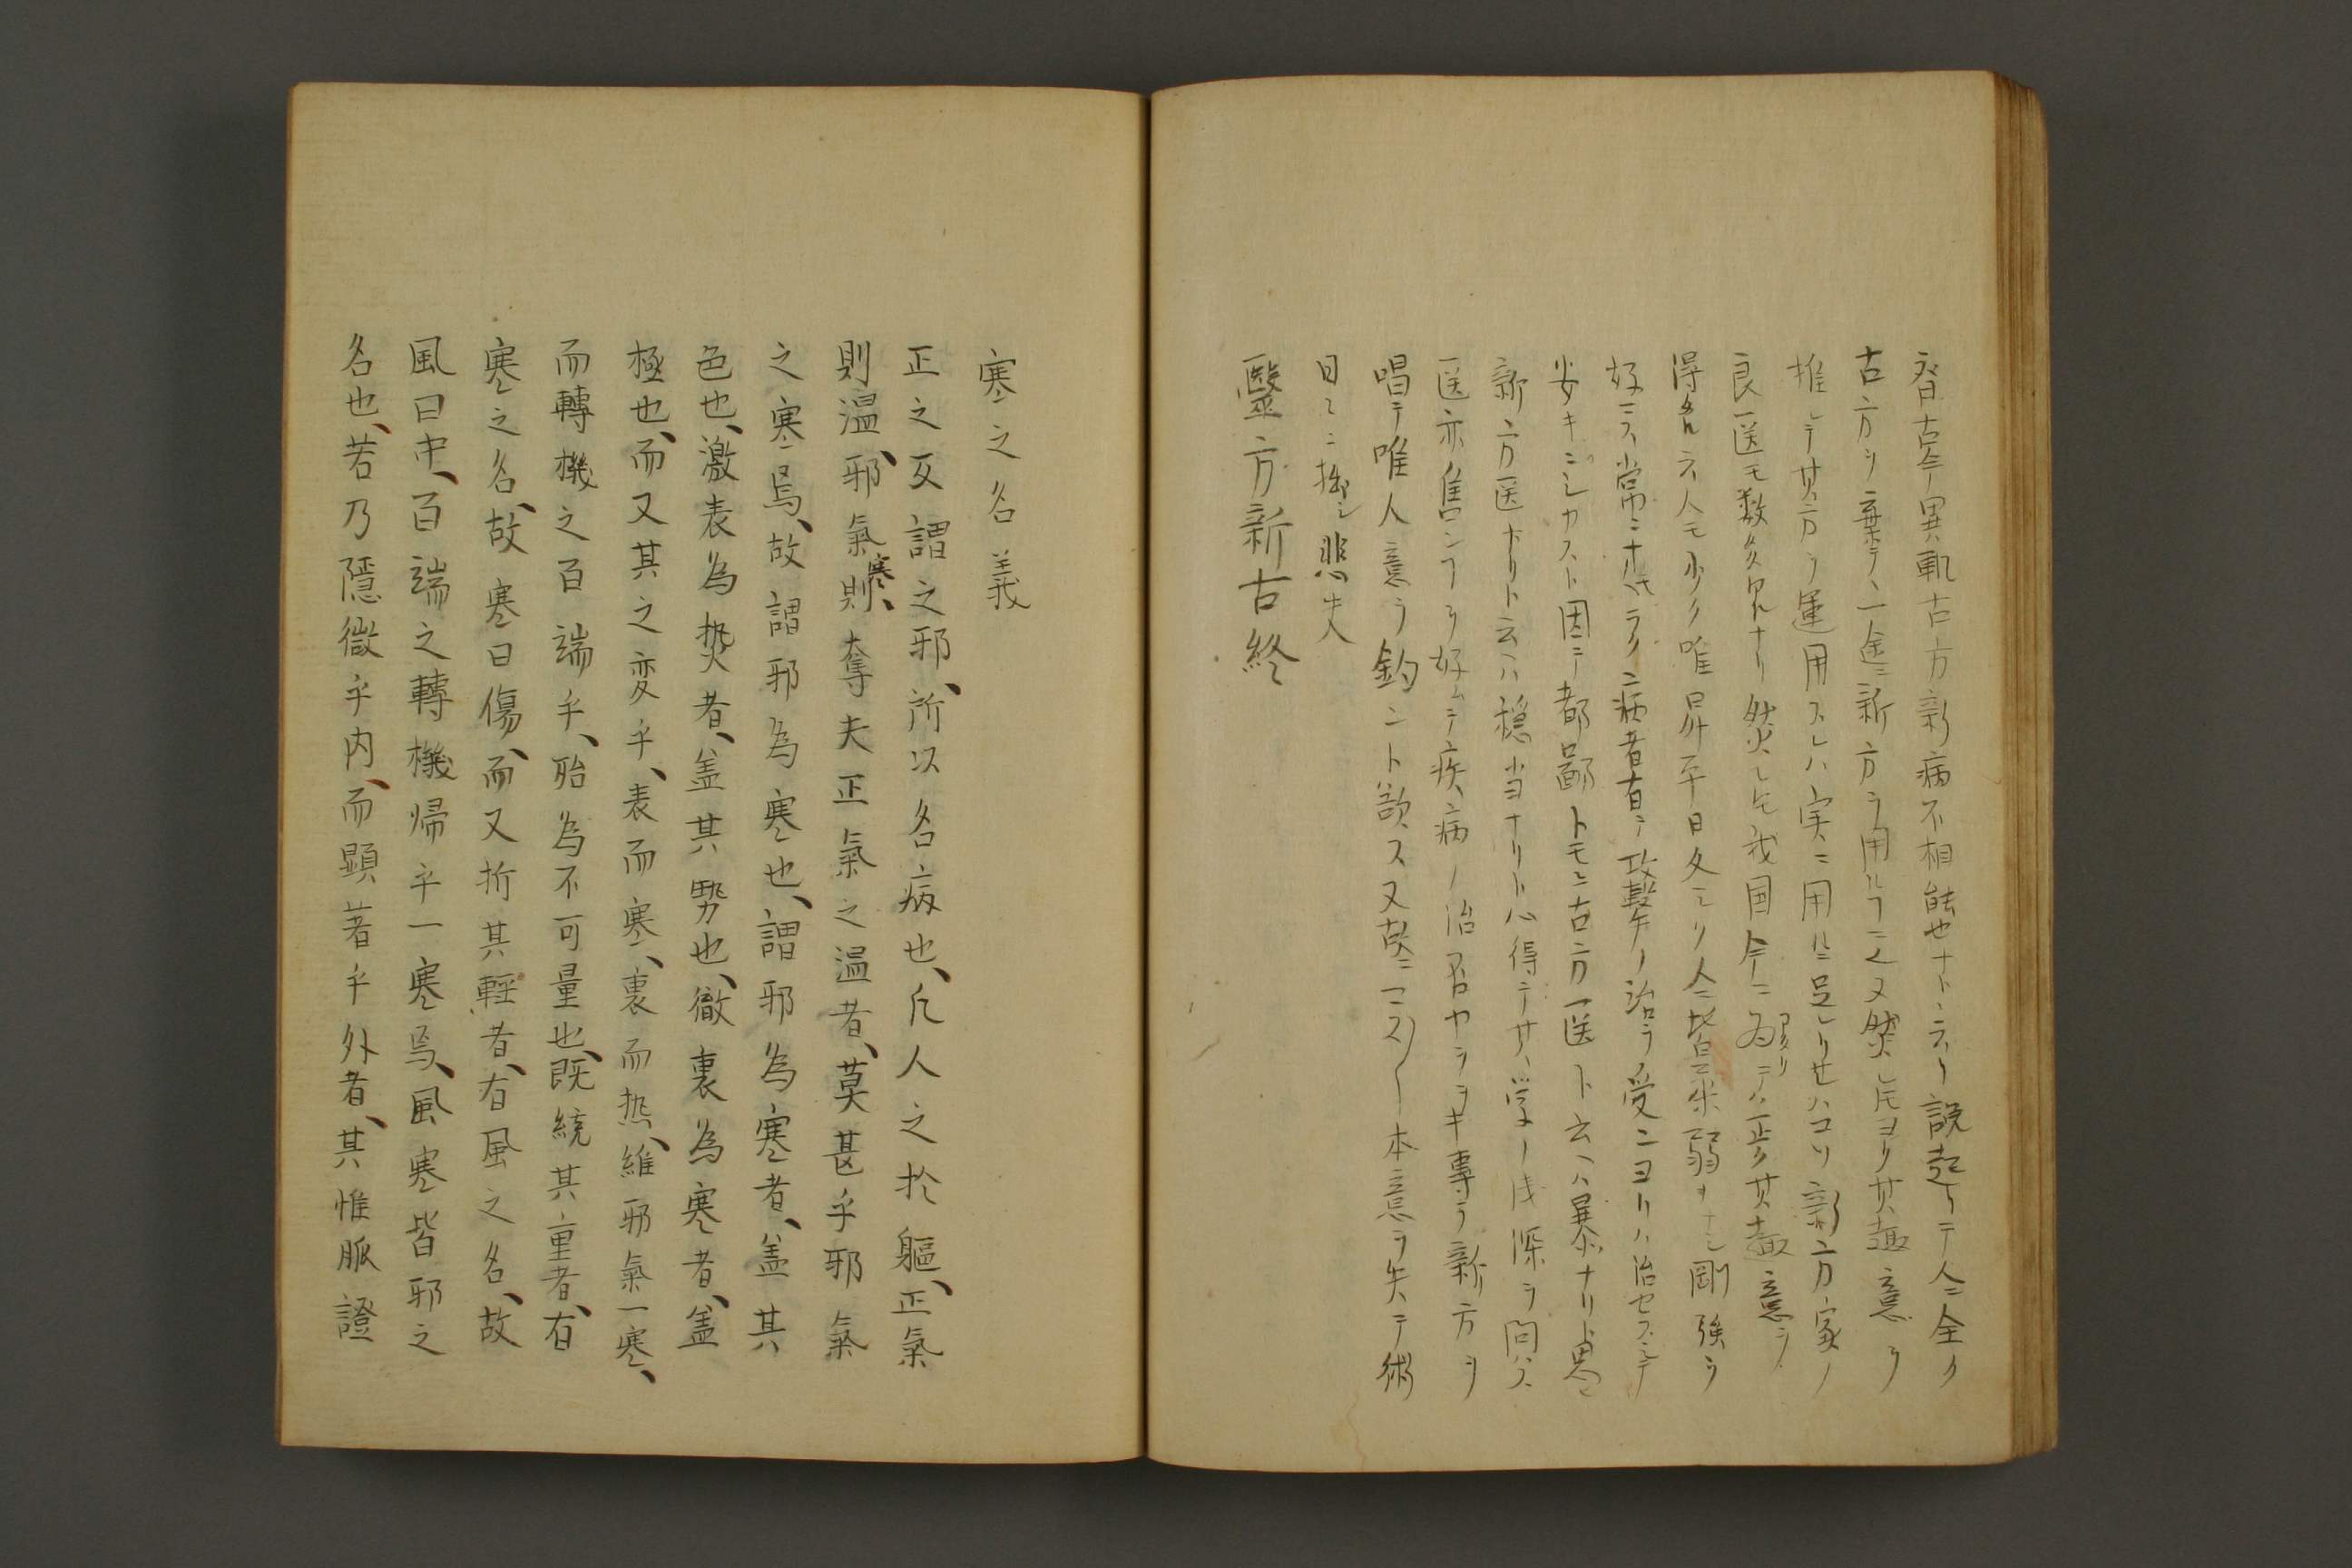 ヲ古今異軌古方新病不相能也ナト云ノ説起リテ人ニ全ク
古方ヲ棄テ、一途ニ新方ヲ用ルヿニ又然レ𪜈ヨリ其趣意ヲ
推シテ其方ヲ運用スレハ実ニ用ルニ足レリサレハコソ新方家ノ
良医モ数多アルナリ然レ𪜈我国今ニ至テハ其趣意ヲ
得タル人モ少ク唯昇平日久ミリ人ニ皆柔弱ナシ剛強ヲ
好ミス常ニ病者有テ攻撃ノ治ヲ受ンヨリハ治セスシテ
安キニシカスト因テ都鄙トモニ古方医ト云ヘハ暴ナリト思
新方医ナリト云ハ穏当ナリト心得テ其学ノ浅深ヲ問ハス
医亦售ンヿヲ好ムテ疾病ノ治専ラ新方ヲ
唱テ唯人意ヲ鈎ント欲ス又本意ヲ失テ術
日ニ拙シ悲夫
醫方新古終
寒之名義
正之反謂之邪、所以名病也、凡人之於軀、正氣
則温、邪氣則寒、奪夫正氣之温者、莫甚乎邪氣
之寒焉、故謂邪為寒也、謂邪為寒者、盖其
色也、激表為熱者、盖其勢也、徹裏為寒者、盖
極也、而又其之変乎、表而寒、裏而熱、維邪氣一寒、
而轉機之百端乎、殆為不可量也、既統其重者、有
寒之名、故寒曰傷、而又折其輕者、有風之名、故
風曰中、百端之轉機帰乎一寒焉、風寒皆邪之
名也、若乃隱微乎内、而顯著乎外者、其惟脈證